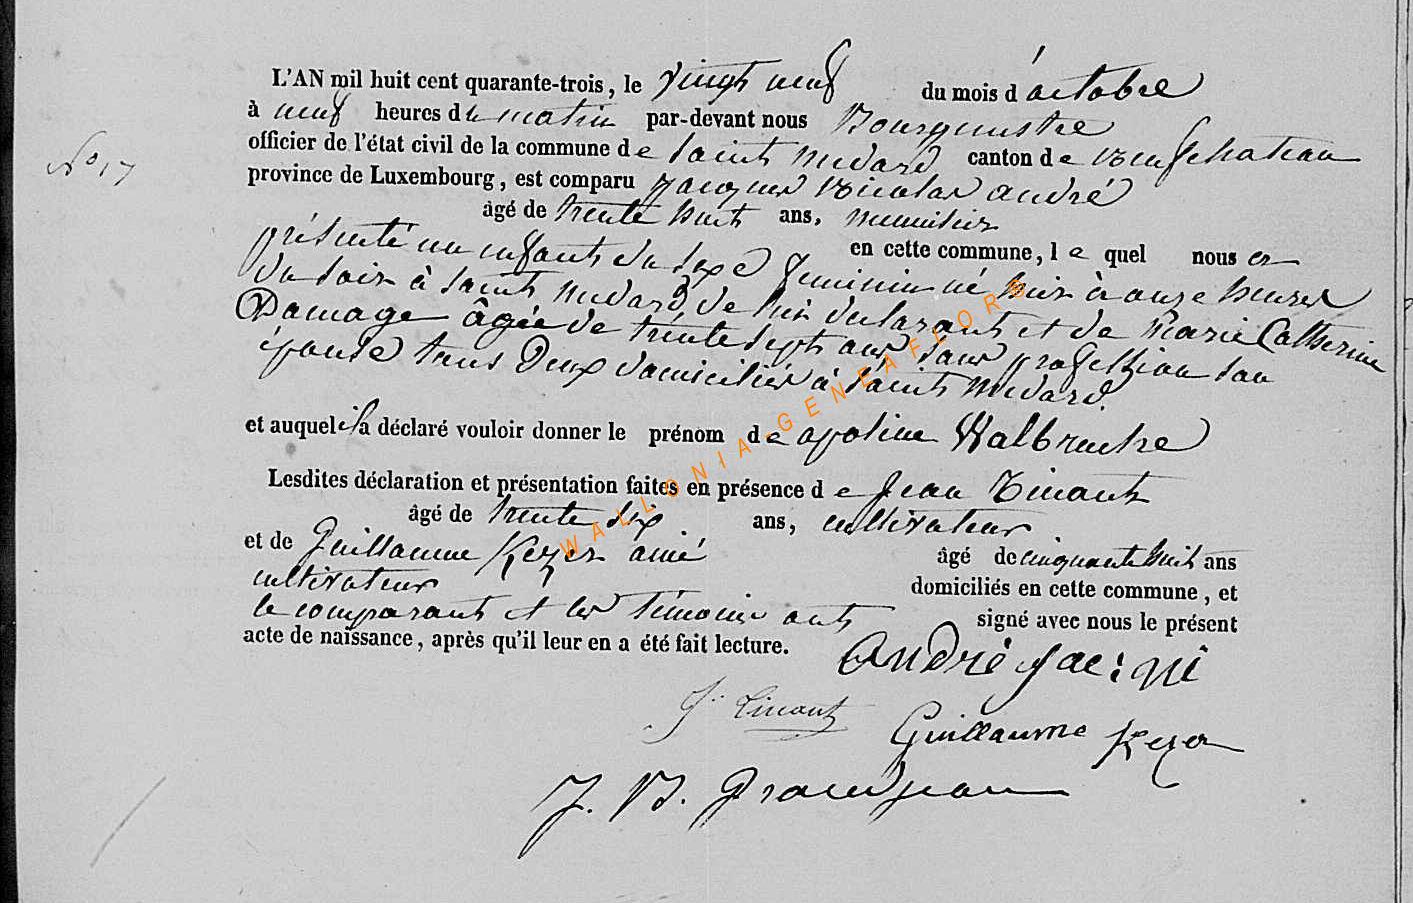 L'AN mil huit cent quarante-trois, le vingt neuf du mois d'octobre
à neuf heures du matin par-devant nous Bourgmestre
officier de l'état civil de la commune de Saint Médard canton de neufchateau
N° 17
province de Luxembourg, est comparu Jacques Nicolas andré
âgé de trente huit ans, menuisier
en cette commune, le quel nous a
présenté un enfant du sexe feminin né hier à onze heures
du soir à Saint Médard de lui déclarant et de Marie Catherine
Damage âgée de trente sept ans sans profession son
épouse tous deux domiciliés à Saint Médard.
et auquel il a déclaré vouloir donner le prénom de apoline Walbruche
Lesdites déclaration et présentation faites en présence de Jean Tinant
âgé de trente six ans, cultivateur
et de Guillaume Kezer ainé âgé de cinquante huit ans
cultivateur domiciliés en cette commune, et
le comparant et les témoins ont signé avec nous le présent
acte de naissance, après qu'il leur en a été fait lecture.
André Jacque
J. Tinant
Guillaume Kezer
J. B. Grandjean
WALLONIA-GENEAFLORE